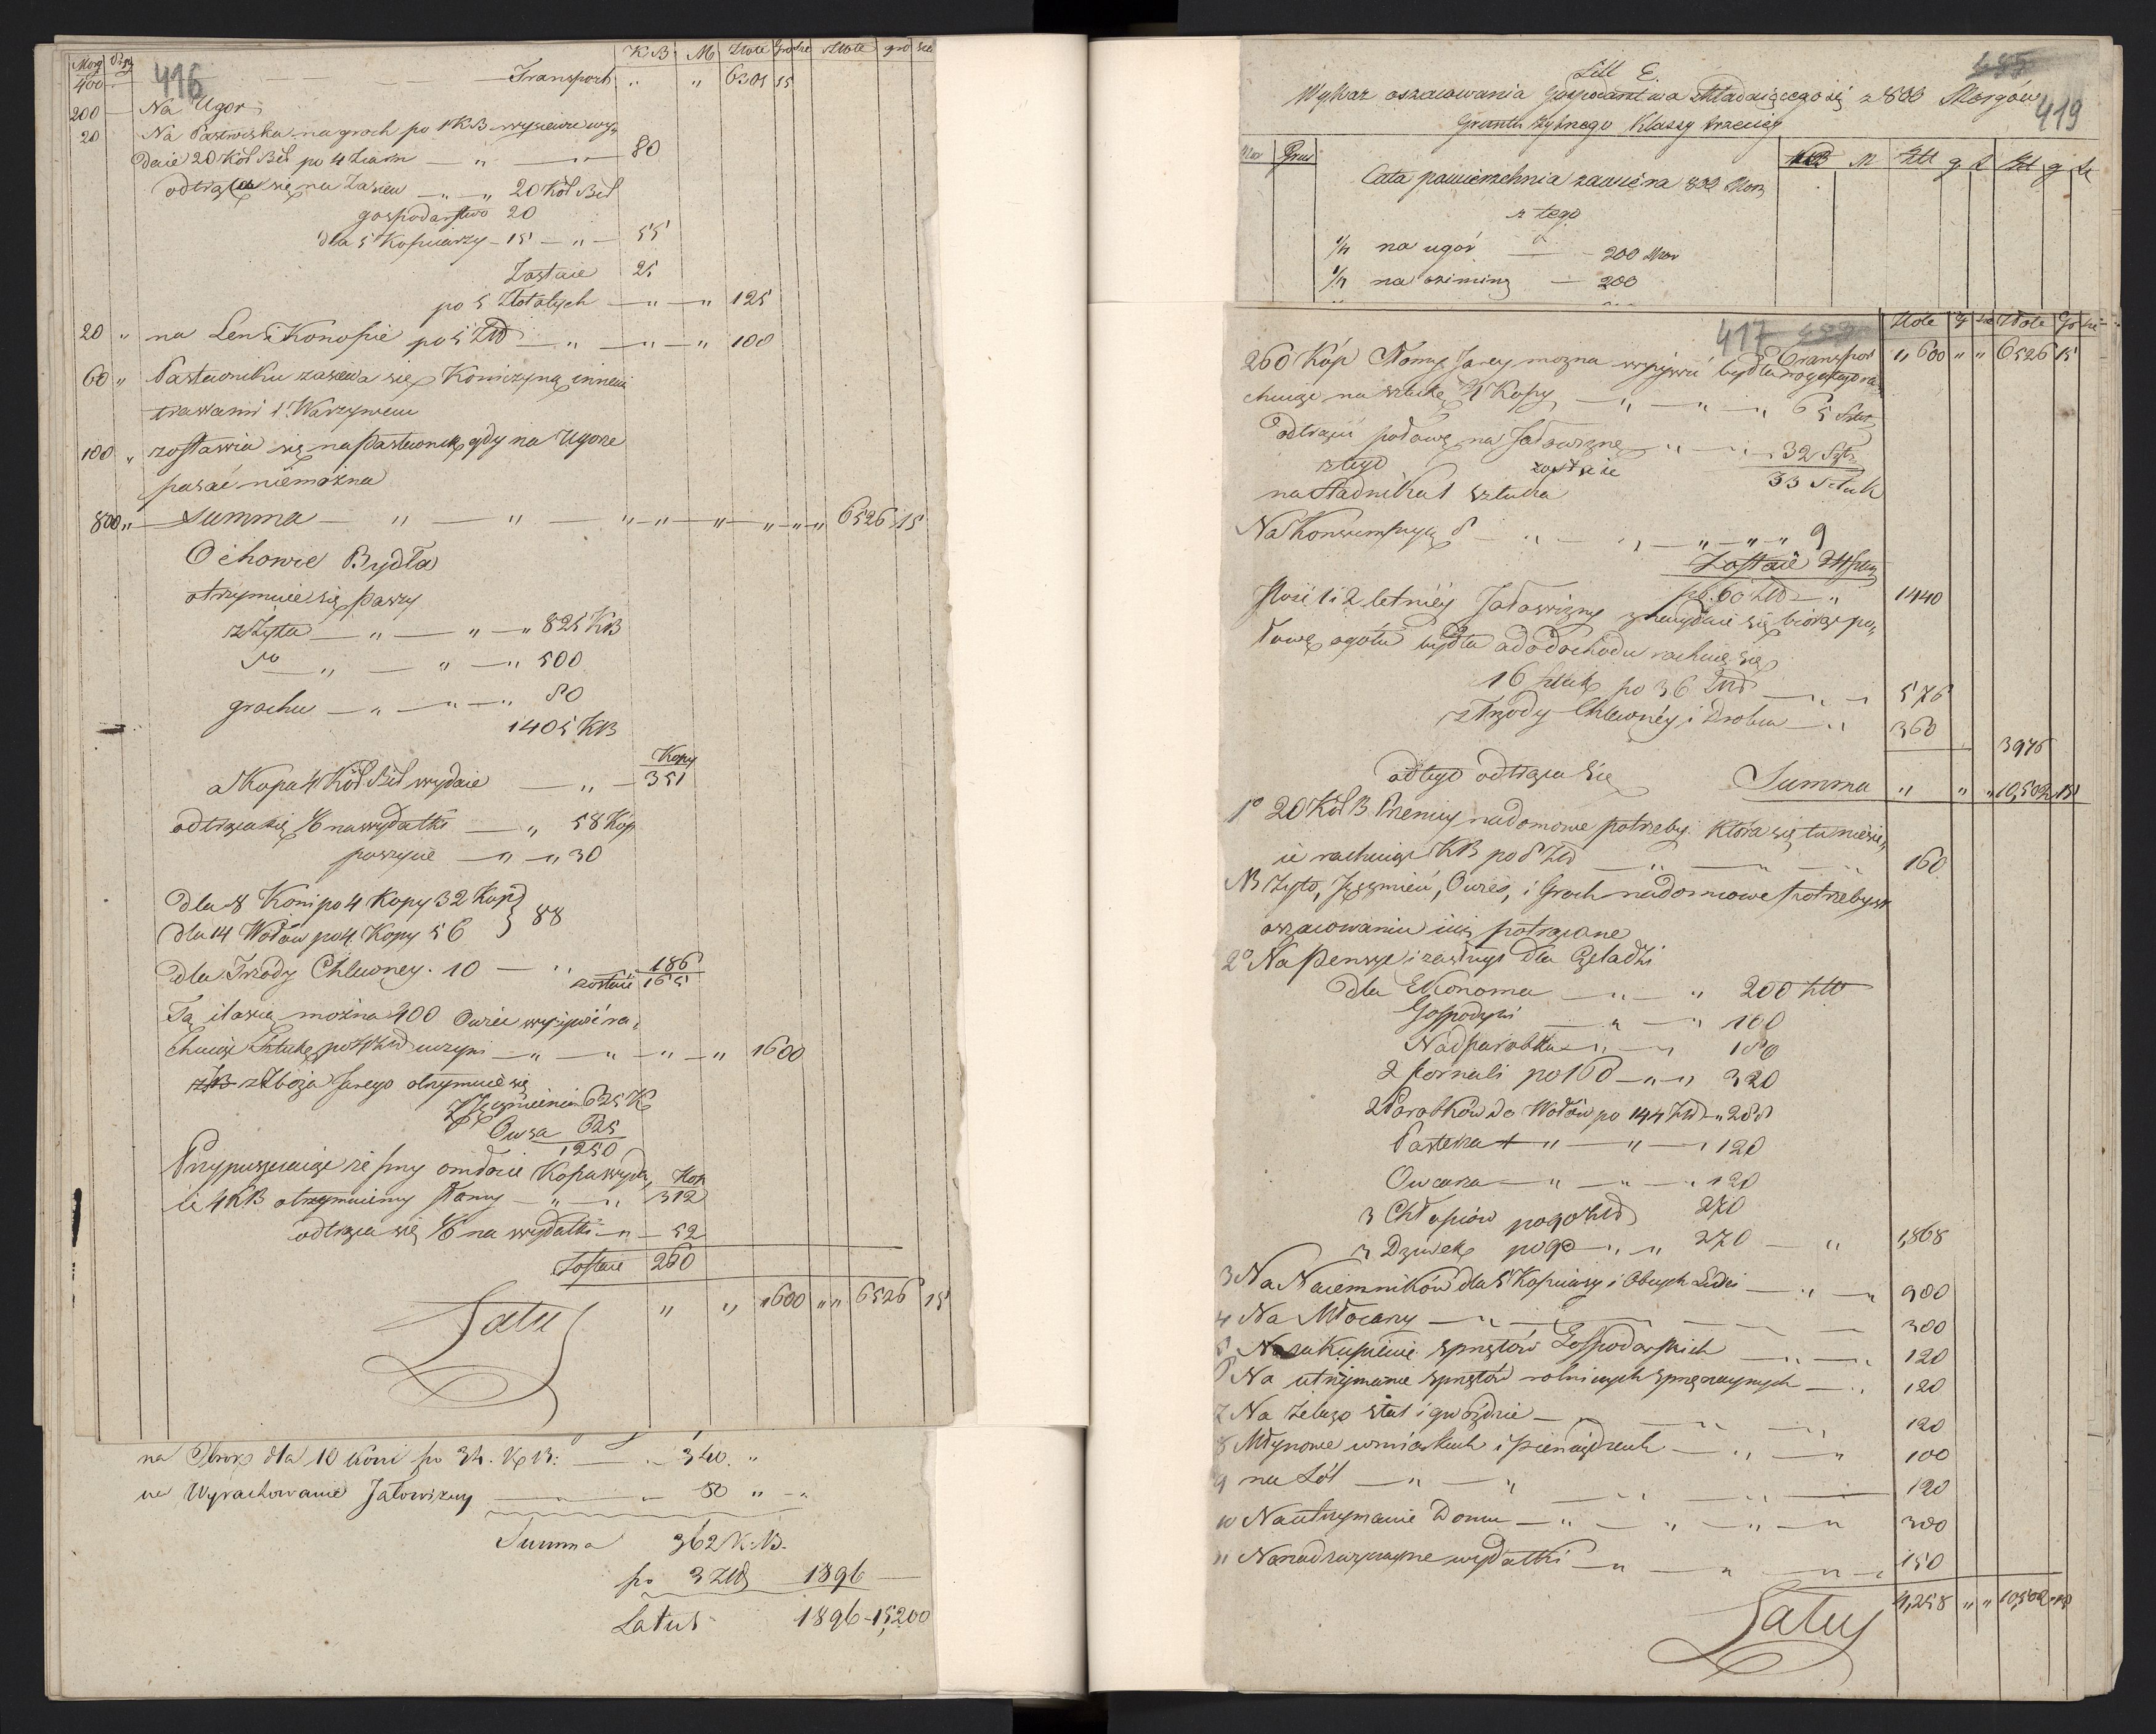 Morg Prę K B. M. Złote Grosze Złote gro sze
416
400 Transport „ „ 6301 15
200 Na Ugor
20 Na Pastwisku na groch po 1 KB wysiewu wy„
daie 20 Kor Bił po 4 Ziarn — „ — 80
odtrąca się na Zasiew — „ „ 20 Kor Bił
gospodarstwo 20
dla 5 Kopiarzy — 15 — „ — 55
Zostaie 25
po 5 Złotalych — „ — „ 125
20 „ na Len i Konopie po 5 Złt — „ — „ — „ 100
60 „ Pastewniku zasiewa się Koniczyną innemi
trawami i Warzywem
100 „ zostawia się na pastewnik gdy na Ugorze
pasać niemożna
800 „ — Summa — „ — „ — „ — „ — „ — „ — „ — „ 6526 15
O chowie Bydła
otrzymuie się paszy
z Żyta — „ — „ — „ 825 KB
„ — „ — „ 500
grochu — „ — „ — „ 80
1405 KB
Kopy
a Kopa 4 Kor Bił wydaie — „ — 351
odtrąca się 1/6 na wydatki — „ 58 Kop
poszycie — „ — „ 30
dla 8 Koni po 4 Kopy 32 Kop } 88
dla 14 Wołów po 4 Kopy 56
dla Trzody Chlewney. 10 — „ 186
zostaie 165
Tą ilością można 400 Owiec wyżywić ra„
chuiąc Sztukę po 4 Złt uczyni — „ — „ — „ — „ 1600
z zboża Jarego otrzymuie się
z Jęczmienia 625 K
Owsa 625
1250
Przypuszczaiąc że przy omłocie Kopa wyda„ Kop
ie 4 KB otrzymuiemy słomy — „ — „ 312
odtrąca się 1/6 na wydatki — „ — 52
Zostaie 260
Latus „ „ 1600 „ „ 6526 15
na Obrok dla 10 koni po 34. K B: — „ 340. „
na Wyrachowanie Jałowizny — „ 50 „ — „
Summa 362 K. B.
po 3 Złt 1896 —
Latus 1896 — 15,200
Litt E.
Wykaz oszacowania Gospodarstwa składaiącego się z 800 Morgów
419
Gruntu żytnego Klassy trzeciey
Mor Pręt KB M Złt g s Złt g s
Cała powierzchnia zawiéra 800 Mor
z tego
1/4 na ugór — 200 Mor
1/4 na oziminę — 200
417 Złote g sze Złote Gr sze
Transport „ 600 „ „ 6526 15
260 Kóp słomy Jarey mozna wyżywić bydła rogatego ra„
chuiąc na sztukę 4 Kopy — „ — „ — „ 65 Sztu
Odtrącić połowę na Jałowiznę — „ — „ 32 Szt
z tego zostaie 33 Sztuk
na Stadnika 1 sztuka
Na Konsumpcyą 8 — „ — „ — „ — „ — „ 9
Zostaie 24 Sztu
po 60 Złt — „ 1440
Ilość 1 i 2 letniéy Jałowizny znayduie się biorąc po„
łowę ogółu bydła a do dochodu rachuie się
16 sztuk po 36 Złt — „ — „ 576
z Trzody Chlewnéy i Drobiu — „ 360
3976
od tego odtrąca się Summa „ „ „ 10,502 15
1° 20 Kor B. Pszenicy na domowe potrzeby. Która się tu mieści„
ić rachuiąc KB po 8 Złt — „ — „ 160
NB Żyto, Jęczmień, Owies, i Groch na domowe potrzeby w
oszacowaniu iuż potrącane
2° Na Pensye i zasługi dla Czeladki
dla Ekonoma — „ — „ 200 Złt
Gospodyni — „ — „ 100
Nadparobka — „ — „ 180
2 fornali po 160 — „ — „ 320
2 Parobków do Wołów po 144 Złt — „ 288
Pasterza — „ — „ — „ 120
Owczarza — „ — „ — „ 120
3 Chłopców po 90 Złt 270
3 Dziwek po 90 — „ — „ 270 — „ 1,868
3 Na Naiemników dla 5 Kopiarzy i Obcych Ludzi — „ — „ 900
4 Na Młocarzy — „ — „ 300
5 Na zakupienie sprzętów Gospodarskich — „ — „ 120
6 Na utrzymanie sprzętów rolniczych sprzężaynych — „ 120
7 Na żelazo stal i gwoździe — „ — „ 120
8 Młynowe w miarkach i pieniądzach — „ — „ 100
9 na Sól — „ — „ — „ 120
10 Na utrzymanie Domu — „ — „ — „ — „ 300
11 Na nadzwyczayne wydatki — „ — „ — „ 150
Latus 4,258 „ „ 10,502 15